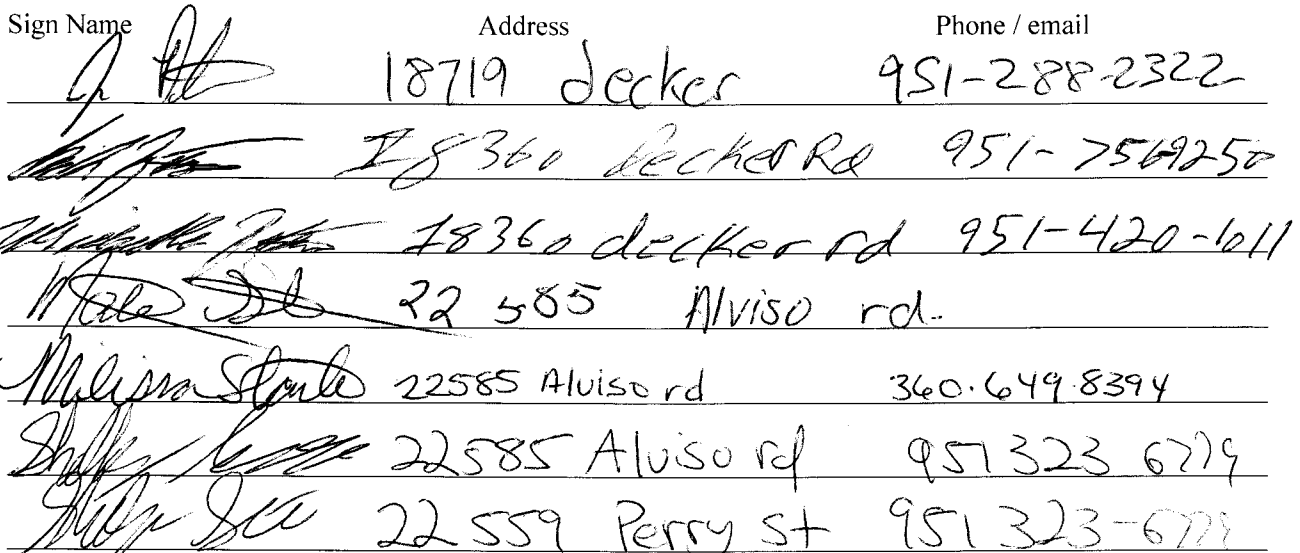 Sign Name Address Phone / email
18719 decker 951-288-2322
18360 decker Rd 951-7569250
18360 decker rd 951-420-1011
22585 Alviso rd.
Melissa 22585 Alviso rd 360.649.8394
22585 Alviso rd 951 323 6779
22559 Perry St 951 323-6779